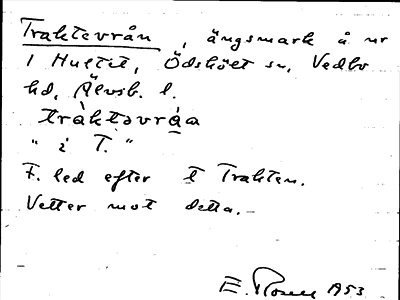 Traktevrån, ängsmark å nr
1 Hultet, Ödskölt sn, Vedbo
hd, Älvsb. l.
tràktəvrá̱a
" i T. "
F. led efter t Trakten.
Vetter mot detta.
E. 1953